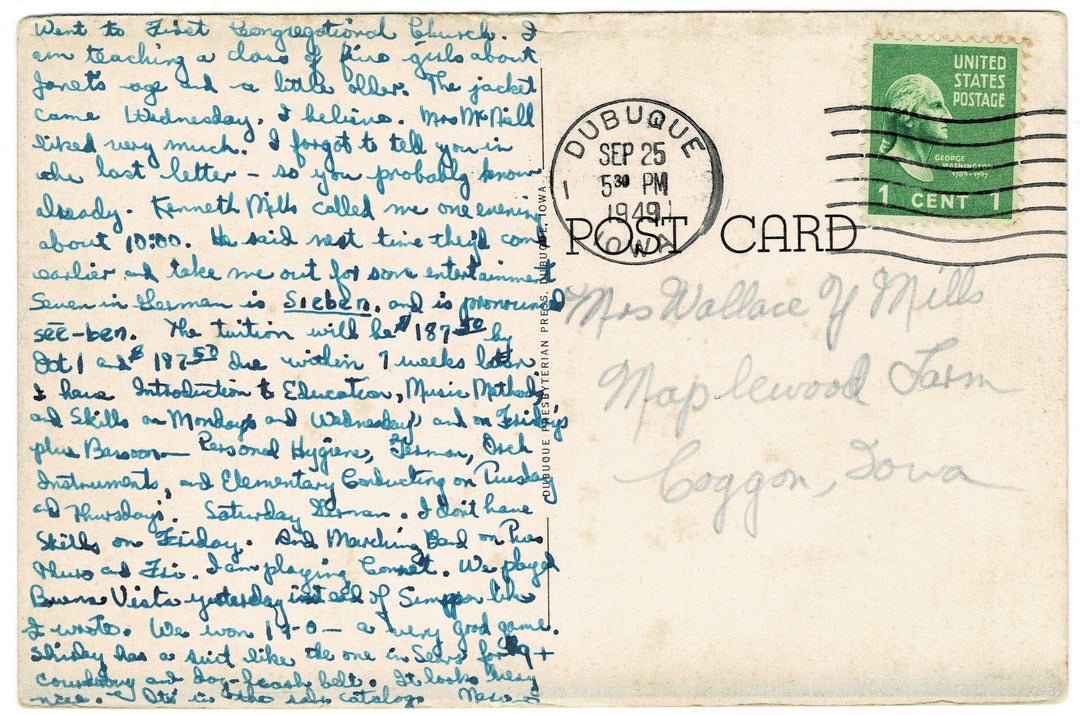 Went to First Congregational Church. I
am teaching a class of five girls about
Janet's age and a little older. The jacket
came Wednesday, I believe. Mrs McNiell
liked very much. I forgot to tell you in
the last letter – so you probably know
already. Kenneth Mills called me one evening
about 10:00. He said next time they'd come
earlier and take me out for some entertainment
Seven in German is Sieben, and is pronounced
see-ben. The tuition will be $187.50 by
Oct 1 and $187.50 due within 7 weeks later
I have Introduction to Education, Music Methods
and Skills on Mondays and Wednesdays and on Fridays
plus Bassoon – Personal Hygiene, German, Orch
Instruments, and Elementary Conducting on Tuesday
and Thursdays. Saturday German. I don't have
Skills on Friday. And Marching Band on Tues
Thurs and Fri. I am playing Cornet. We played
Buena Vista yesterday instead of Simpson like
I wrote. We won 19-0 – a very good game.
Shirley has a suit like the one in Sears for
corduroy and belt. It looks very
nice. – It's in the catalog.
DUBUQUE PRESBYTERIAN PRESS, DUBUQUE, IOWA
DUBUQUE
SEP 25
5 30 PM
1949
IOWA
1
UNITED
STATES
POSTAGE
GEORGE
WASHINGTON
1 CENT 1
POST CARD
Mrs Wallace Y Mills
Maplewood Farm
Coggon, Iowa